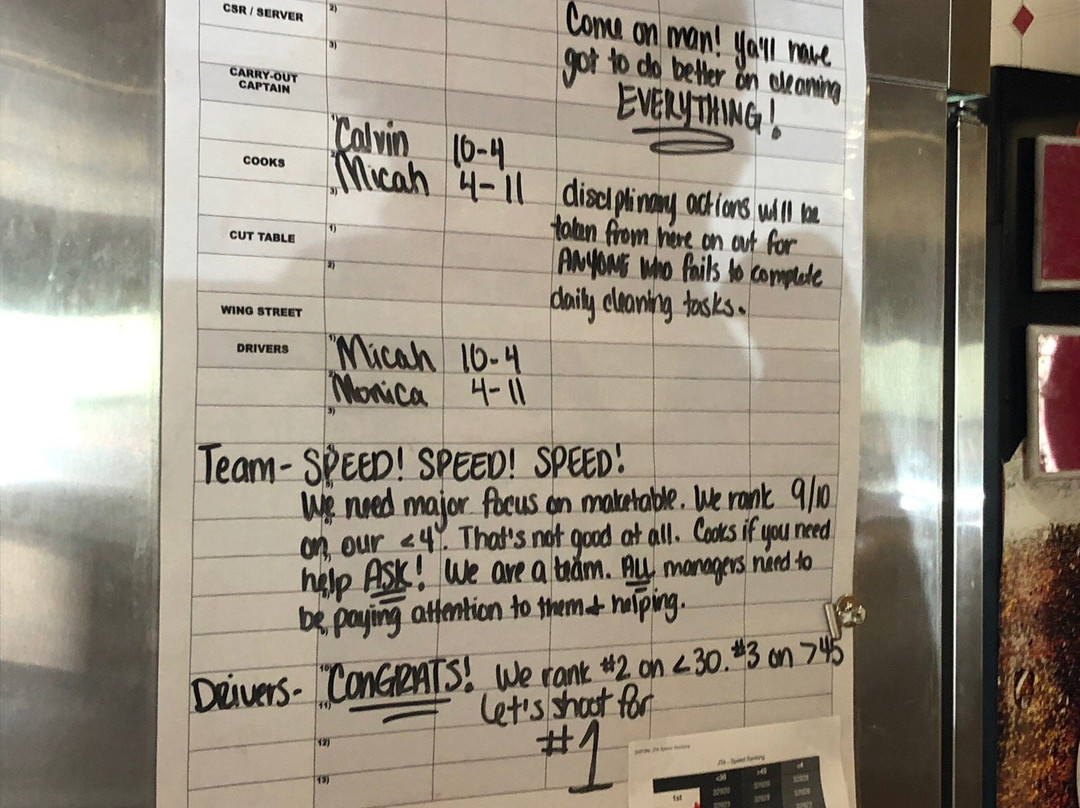 CSR / SERVER
2)
3)
Come on man! ya'll have
got to do better on cleaning
EVERYTHING!
CARRY-OUT
CAPTAIN
COOKS
1) Calvin 10-4
2) Micah 4-11
3)
disciplinary actions will be
taken from here on out for
ANYONE who fails to complete
daily cleaning tasks.
CUT TABLE
1)
2)
WING STREET
DRIVERS
1) Micah 10-4
2) Monica 4-11
3)
Team- SPEED! SPEED! SPEED!
We need major focus on maketable. We rank 9/10
on our <4. That's not good at all. Cooks if you need
help ASK! We are a team. ALL managers need to
be paying attention to them + helping.
Drivers- CONGRATS! We rank #2 on <30. #3 on >45
Let's shoot for
#1
10)
11)
12)
13)
Speed Ranking
<30 >45 <4
1st